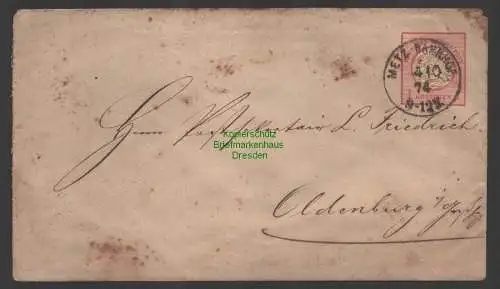 METZ BAHNHOF
4 10
74
9-12V.
Herrn Postsekretair L. Friedrich.
Kopierschutz
Briefmarkenhaus
Dresden
Oldenburg